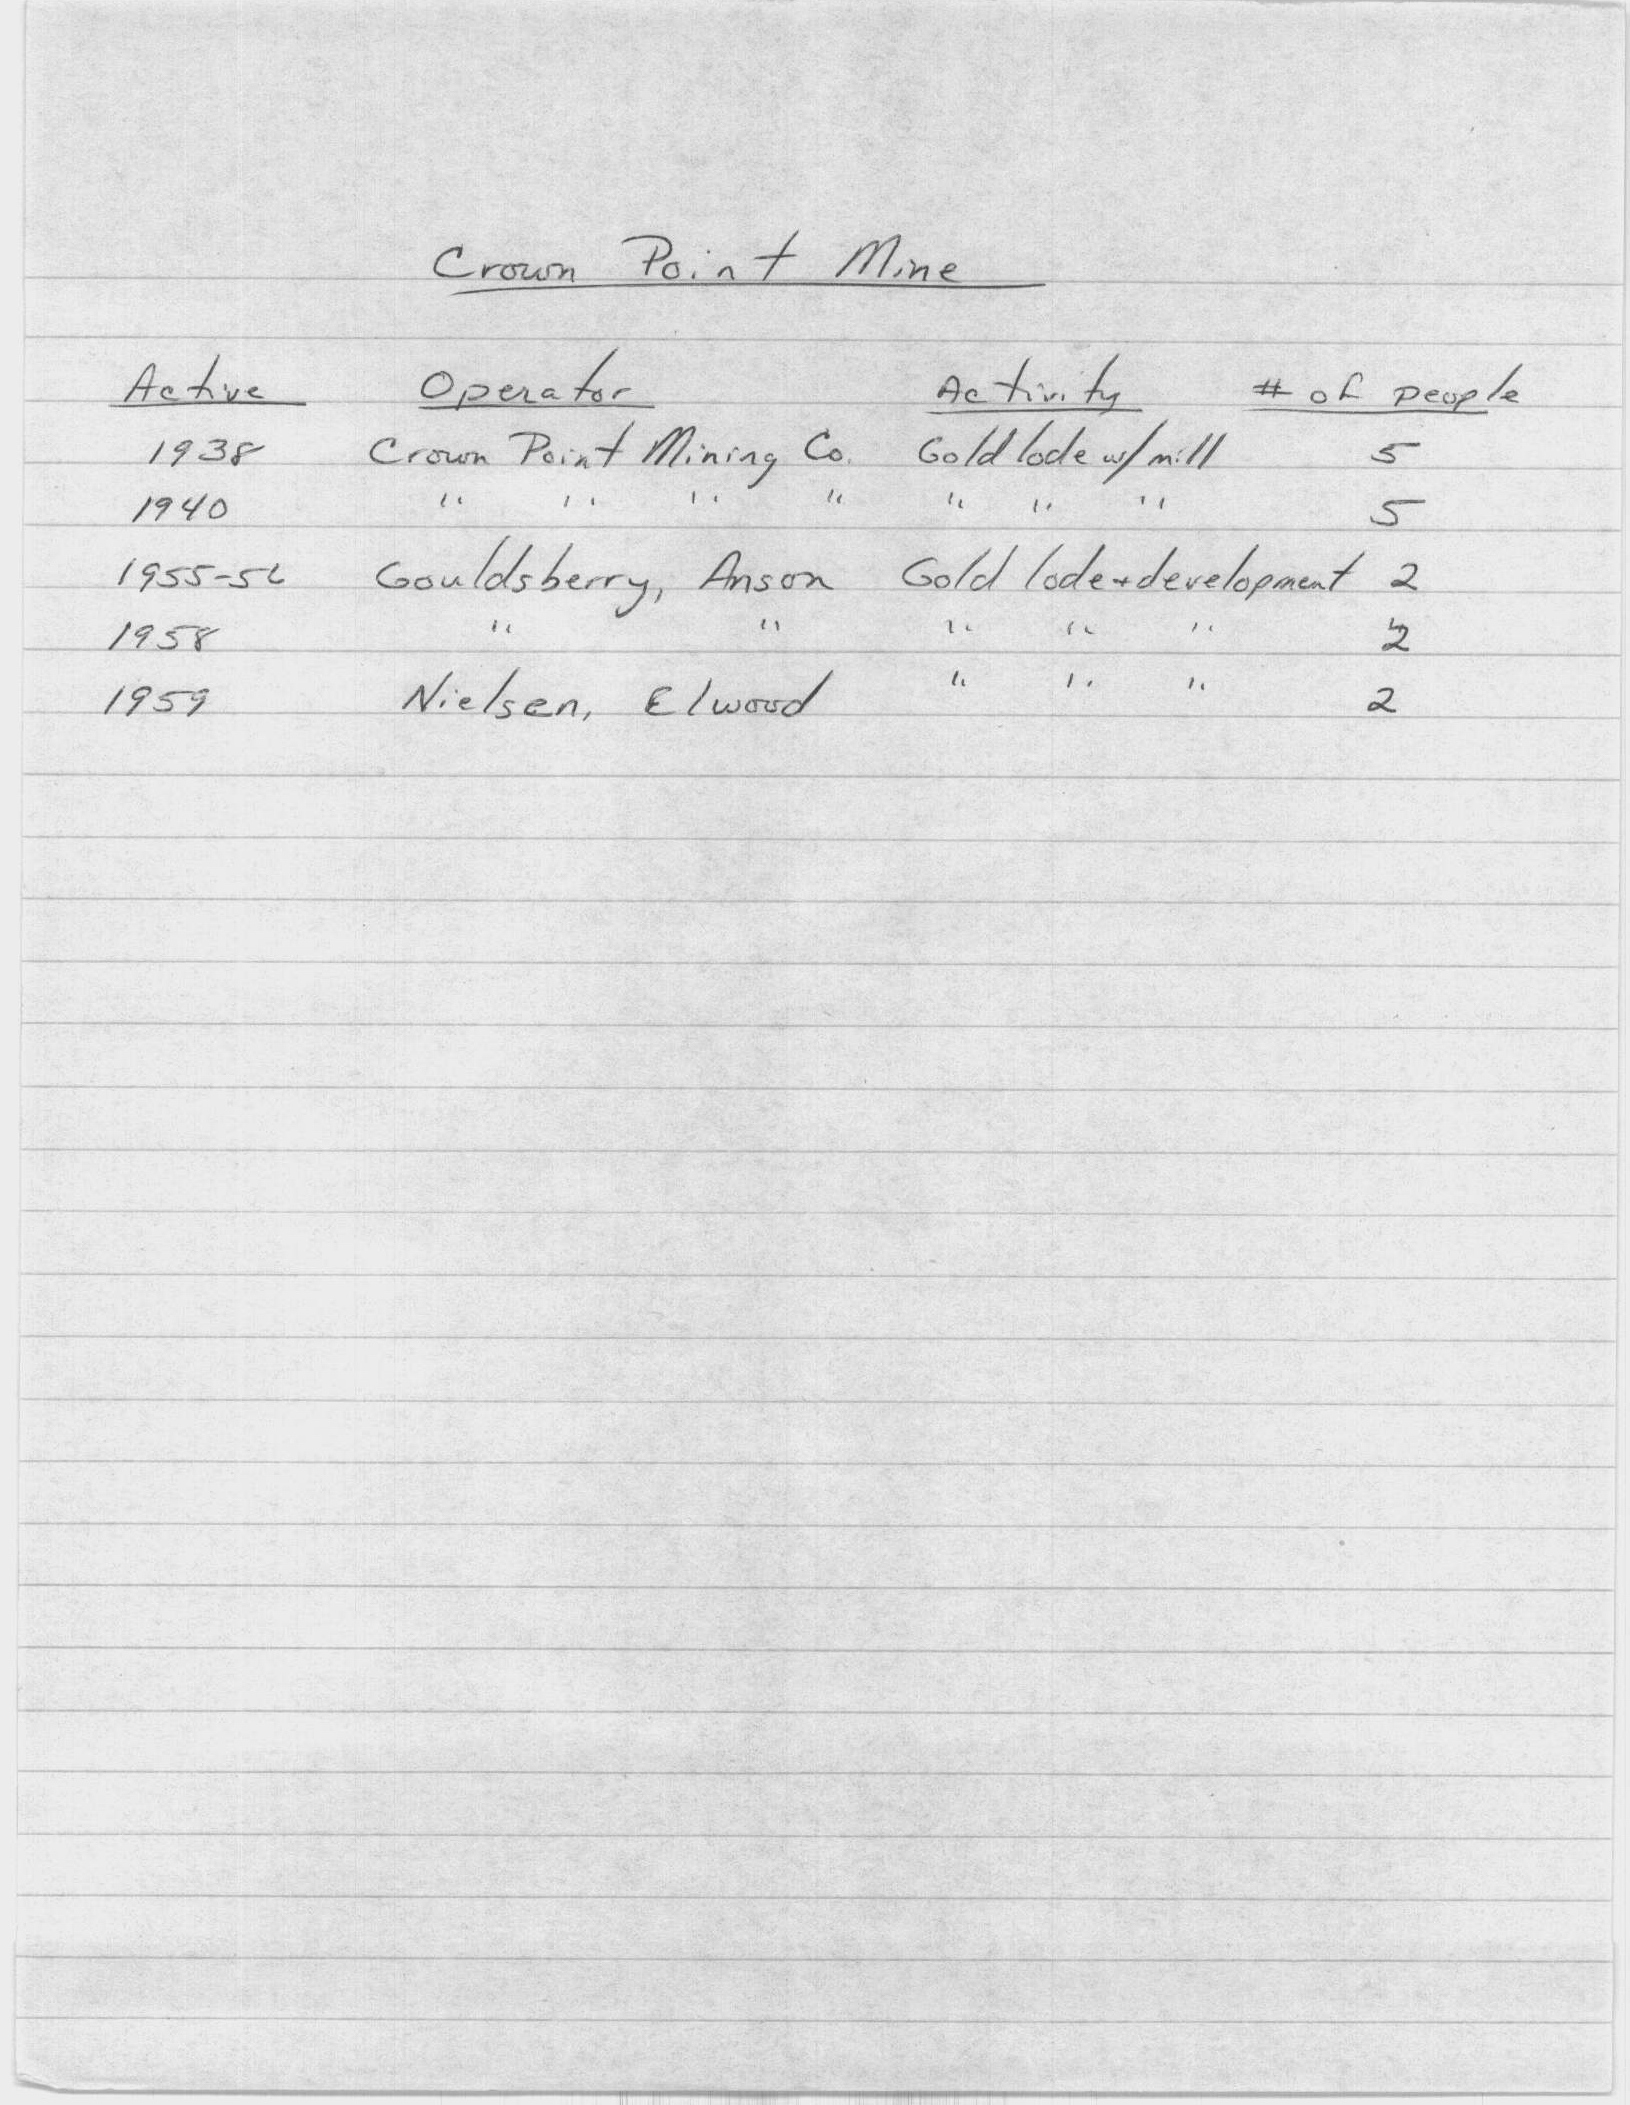 Crown Point Mine
Active Operator Activity # of people
1938 Crown Point Mining Co. Gold lode w/ mill 5
1940 " " " " " " " 5
1955-56 Gouldsberry, Anson Gold lode + development 2
1958 " " " " " 2
1959 Nielsen, Elwood " " " 2